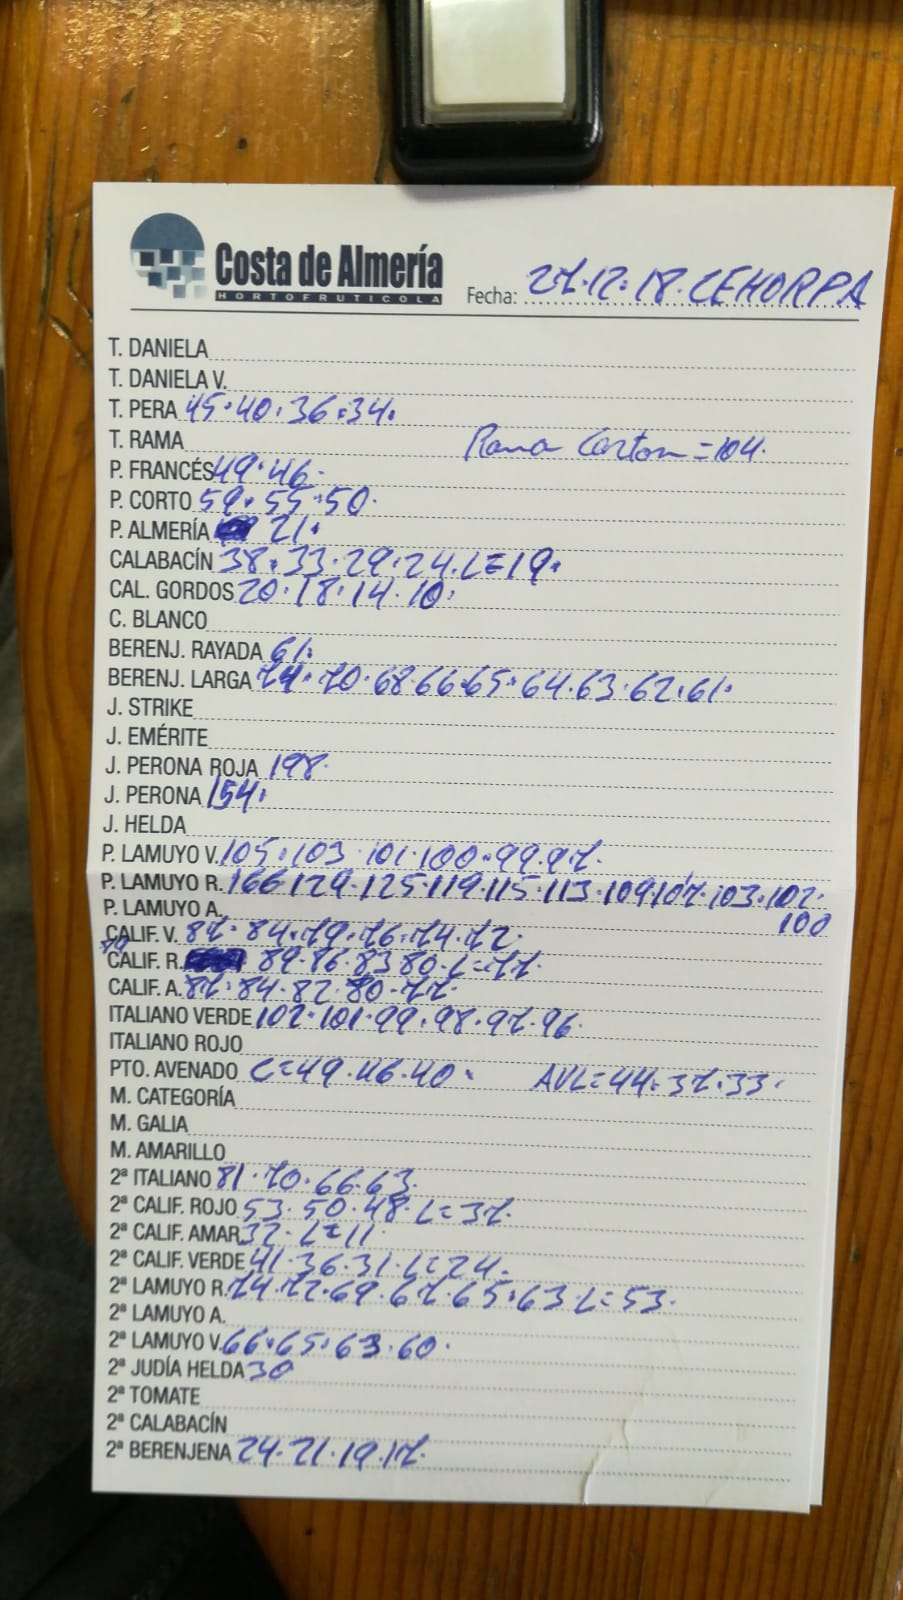 Costa de Almería
HORTOFRUTICOLA
Fecha: 27.12.18. CEHORPA
T. DANIELA
T. DANIELA V.
T. PERA 45.40.36.34.
T. RAMA Rama Carton=104.
P. FRANCÉS 49.46.
P. CORTO 59.55.50.
P. ALMERÍA 21.
CALABACÍN 38.33.29.24.L=19.
CAL. GORDOS 20.18.14.10.
C. BLANCO
BERENJ. RAYADA 61.
BERENJ. LARGA 74.70.68.66.65.64.63.62.61.
J. STRIKE
J. EMÉRITE
J. PERONA ROJA 198.
J. PERONA 154.
J. HELDA
P. LAMUYO V. 105.103.101.100.99.97.
P. LAMUYO R. 166.129.125.119.115.113.109.107.103.102.
100
P. LAMUYO A.
CALIF. V. 87.84.79.76.74.72.
CALIF. R. 89.86.83.80.L=77.
CALIF. A. 87.84.82.80.77.
ITALIANO VERDE 102.101.99.98.97.96.
ITALIANO ROJO
PTO. AVENADO C=49.46.40. AVL=44.37.33.
M. CATEGORÍA
M. GALIA
M. AMARILLO
2ª ITALIANO 81.70.66.63.
2ª CALIF. ROJO 53.50.48.L=37.
2ª CALIF. AMAR. 32.L=11.
2ª CALIF. VERDE 41.36.31.L=24.
2ª LAMUYO R. 74.72.69.67.65.63.L=53.
2ª LAMUYO A.
2ª LAMUYO V. 66.65.63.60.
2ª JUDÍA HELDA 30
2ª TOMATE
2ª CALABACÍN
2ª BERENJENA 24.21.19.17.